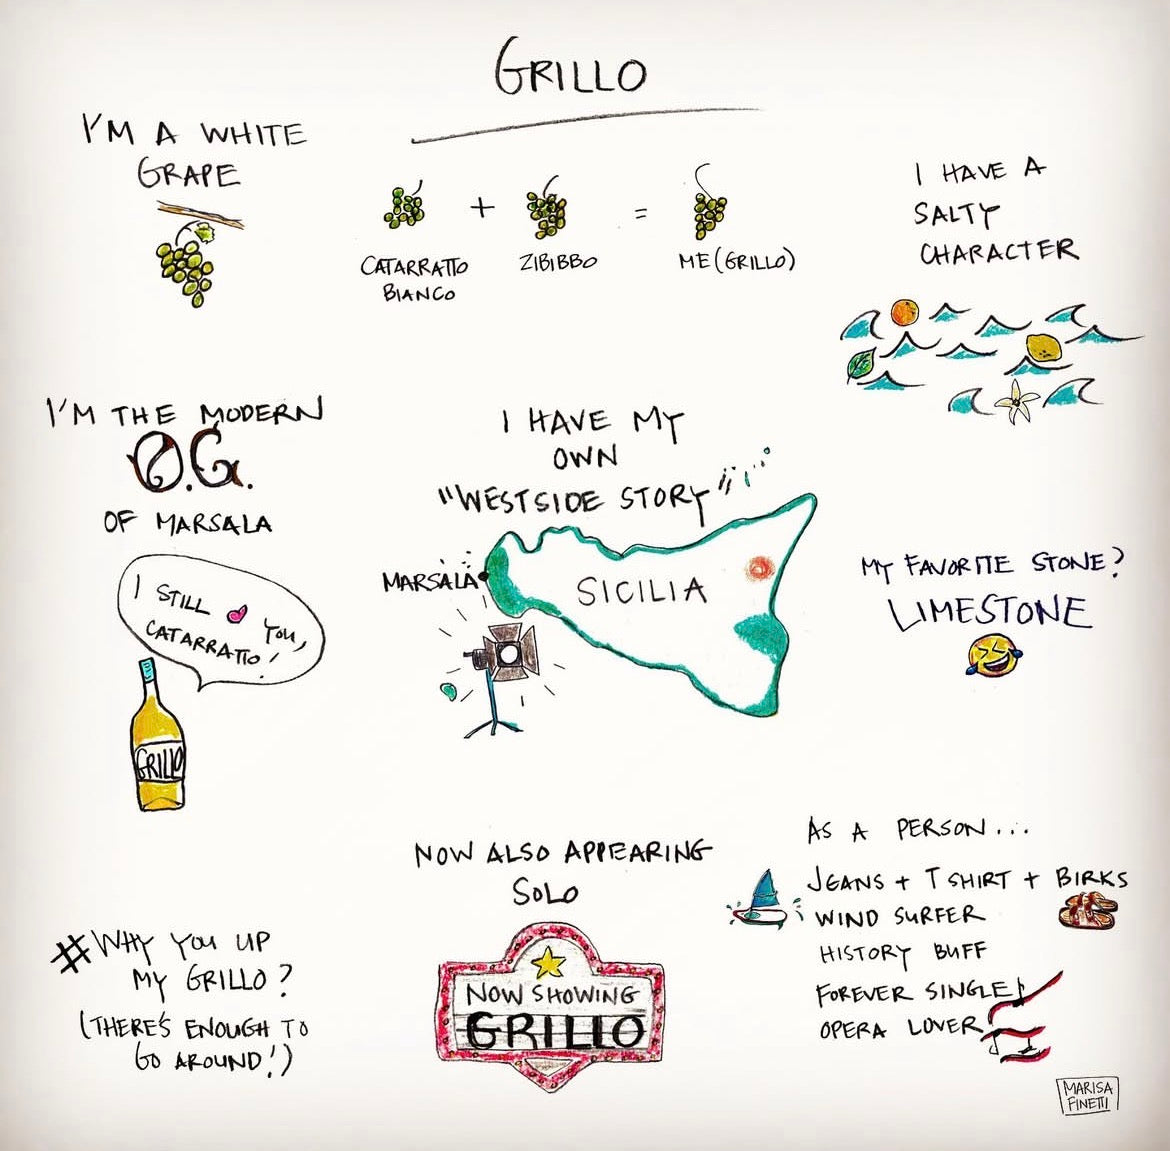 GRILLO
I'M A WHITE
GRAPE
CATARRATTO
BIANCO
+
ZIBIBBO
=
ME (GRILLO)
I HAVE A
SALTY
CHARACTER
I'M THE MODERN
O.G.
OF MARSALA
I STILL
YOU,
CATARRATTO!
GRILLO
I HAVE MY
OWN
"WESTSIDE STORY"
MARSALA
SICILIA
MY FAVORITE STONE?
LIMESTONE
NOW ALSO APPEARING
SOLO
NOW SHOWING
GRILLO
AS A PERSON...
JEANS + T SHIRT + BIRKS
WIND SURFER
HISTORY BUFF
FOREVER SINGLE
OPERA LOVER
#WHY YOU UP
MY GRILLO?
(THERE'S ENOUGH TO
GO AROUND!)
MARISA
FINETTI